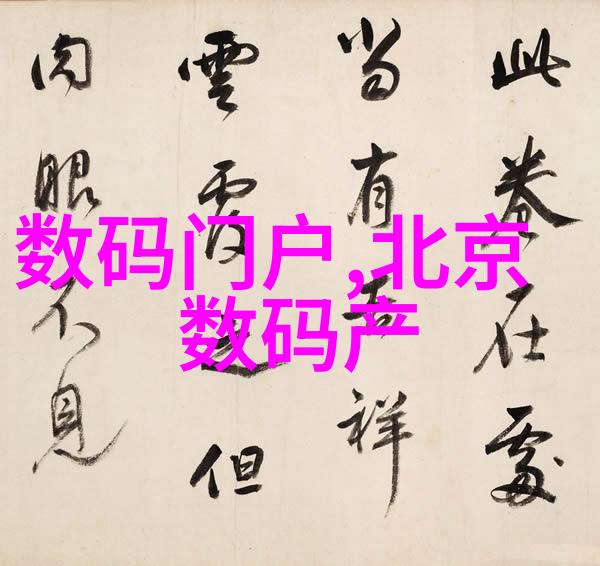 此卷在處
当有吉祥
雲霞但
肉眼不見
数码门户,北京
数码产